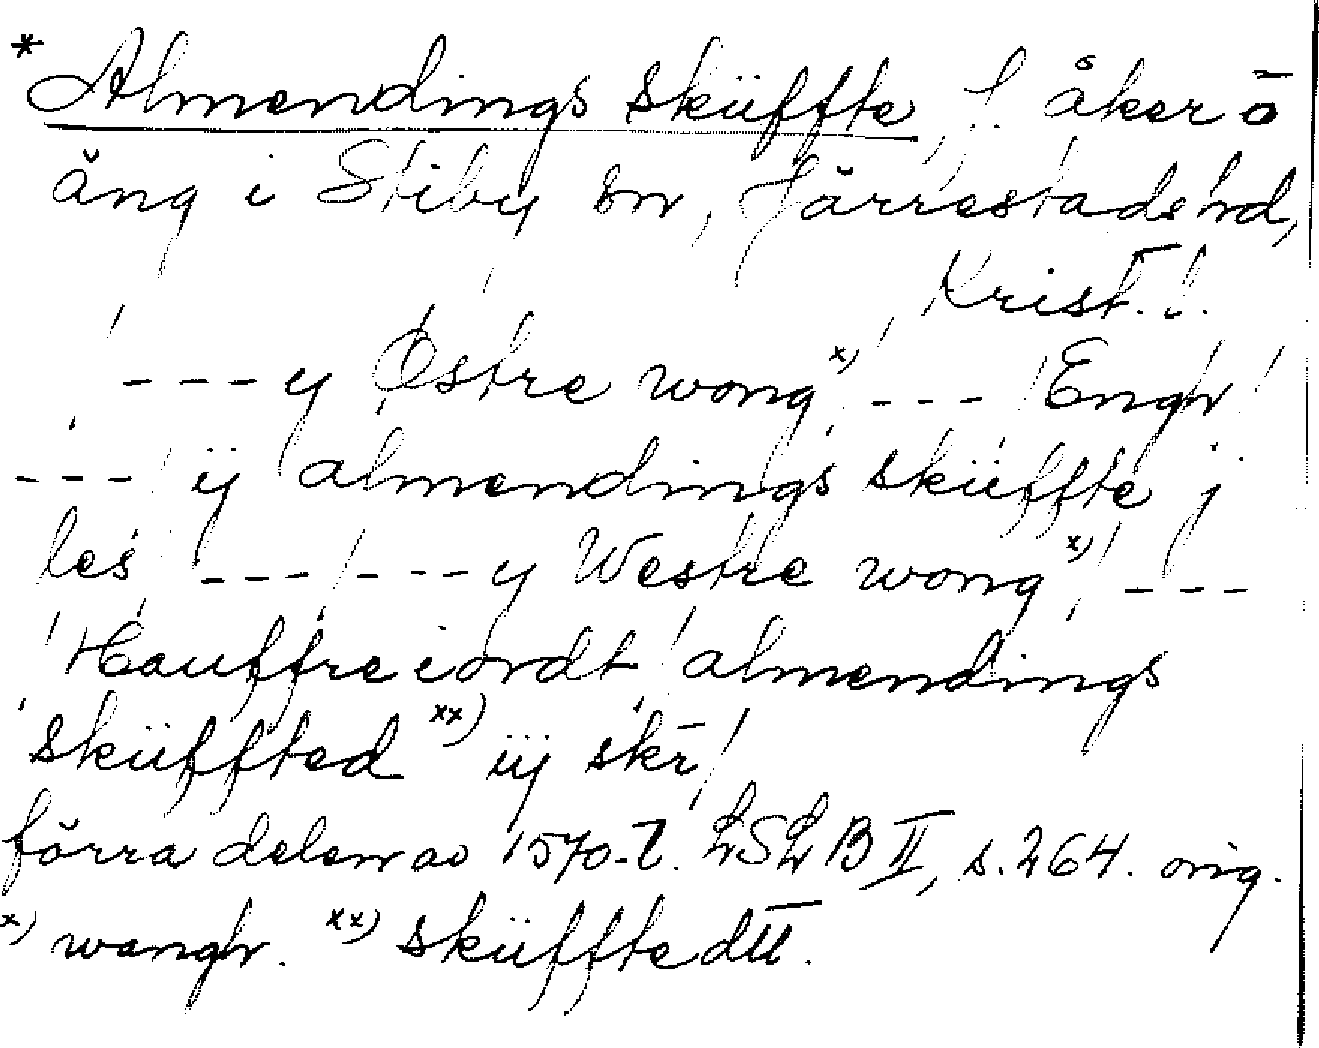 * Almendings sküffte, f. åker ō
äng i Stiby sn, Järrestads hd,
Krist. l.
--- y Østre wong x) --- / Engh /
--- / ij almendings sküffte j
les --- / --- y Westre wong x) / ---
/ Hauffre iordt / almendings
sküffted xx) iij skr̄ /
förra delen av 1570-t. LSLB II, s. 264. orig.
x) wangh. xx) sküfftedtt.